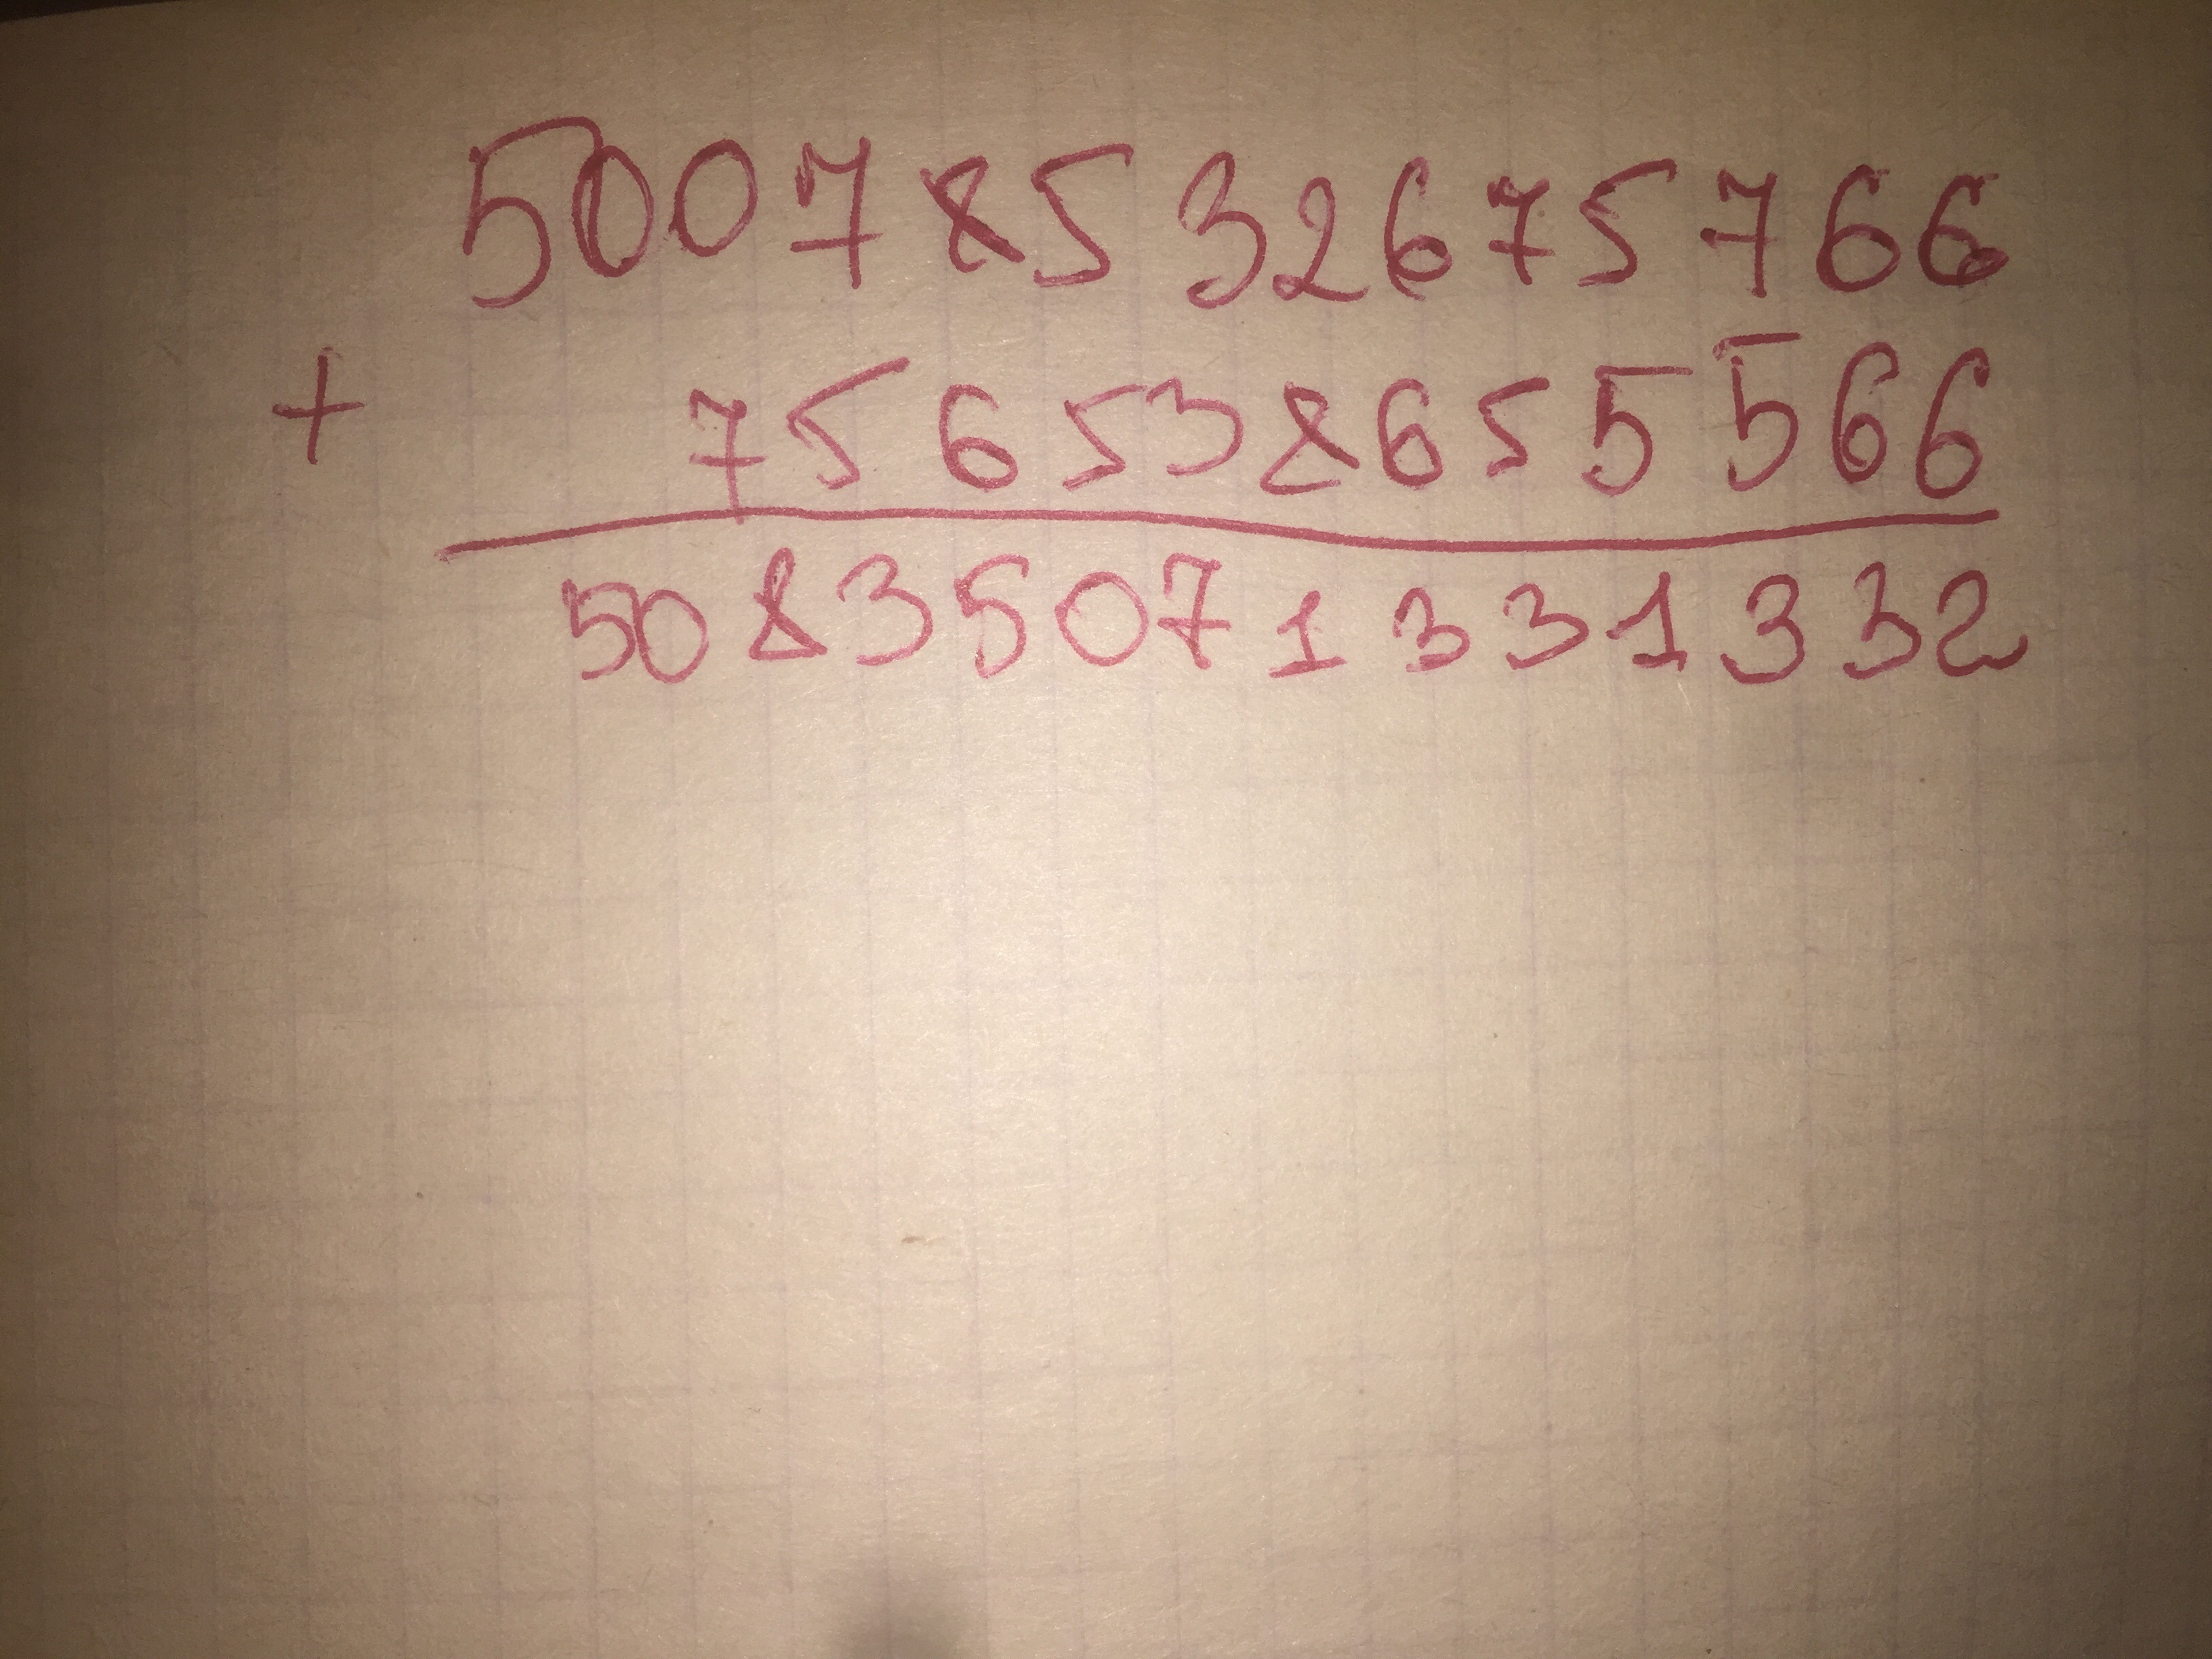 50078532675766
+ 756538655566
50835071331332